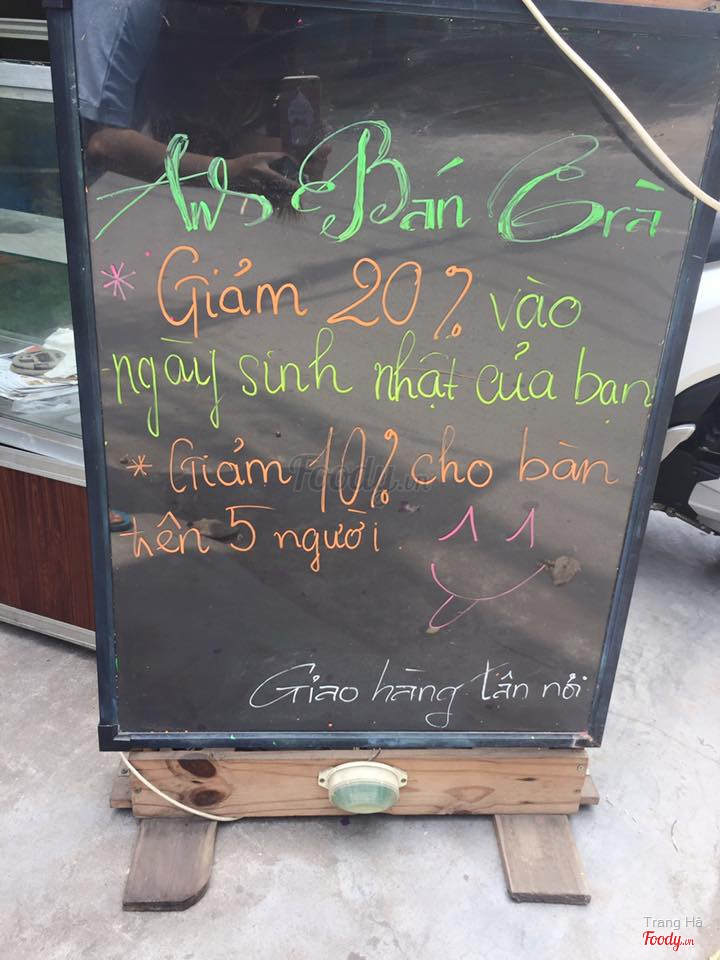 Anh Bán Trà
* Giảm 20% vào
ngày sinh nhật của bạn
* Giảm 10% cho bàn
trên 5 người
Giao hàng tận nơi
Foody.vn
Trang Hà
Foody.vn